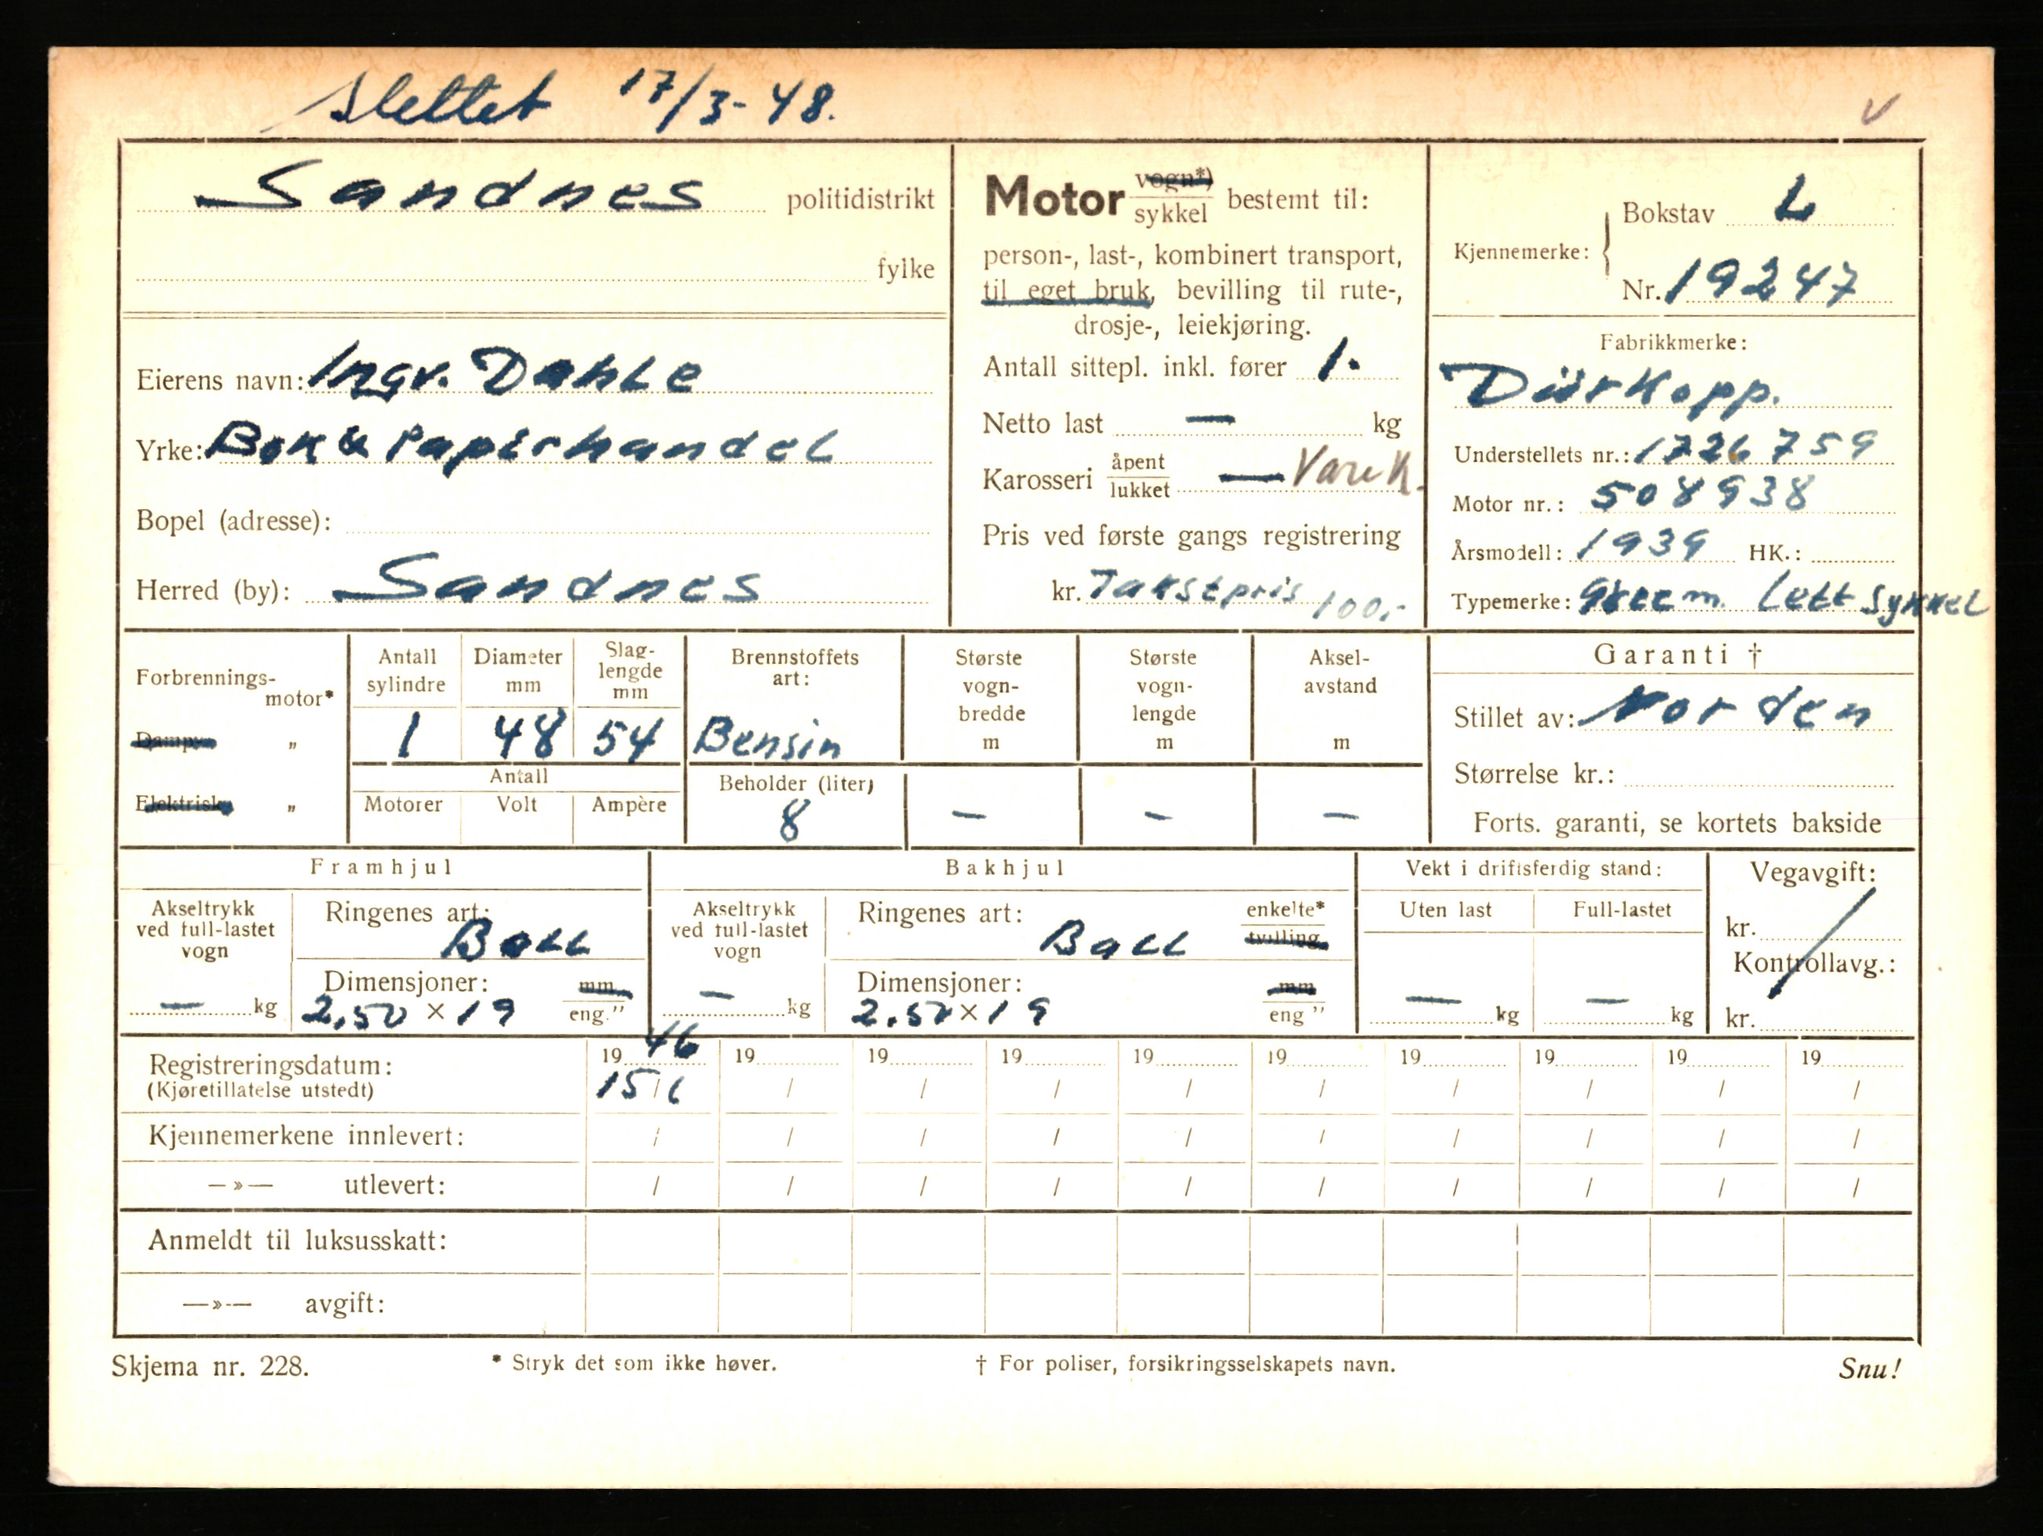 Slettet 17/3-48.
Sandnes politidistrikt
fylke
Eierens navn: Ingv. Dahle
Yrke: Bok & Papirhandel
Bopel (adresse):
Herred (by): Sandnes
Motor vogn*) sykkel bestemt til:
person-, last-, kombinert transport,
til eget bruk, bevilling til rute-,
drosje-, leiekjøring.
Antall sittepl. inkl. fører 1.
Netto last — kg
Karosseri åpent lukket — Varek.
Pris ved første gangs registrering
kr. Takstpris 100,-
Kjennemerke: Bokstav L
Nr. 19247
Fabrikkmerke:
Dürkopp.
Understellets nr.: 1726759
Motor nr.: 508938
Årsmodell: 1939 HK.:
Typemerke: 98 ccm. Lett sykkel
Forbrennings-
motor*
Damp „
Elektrisk „
Antall sylindre
1
Diameter mm
48
Slag-lengde mm
54
Antall
Motorer Volt Ampère
Brennstoffets art:
Bensin
Beholder (liter)
8
Største vogn-bredde m
—
Største vogn-lengde m
—
Aksel-avstand m
—
Garanti †
Stillet av: Norden
Størrelse kr.:
Forts. garanti, se kortets bakside
Framhjul
Akseltrykk ved full-lastet vogn
— kg
Ringenes art: Ball
Dimensjoner: mm
2,50 × 19 eng."
Bakhjul
Akseltrykk ved full-lastet vogn
— kg
Ringenes art: Ball enkelte* tvilling
Dimensjoner: mm
2.50 × 19 eng "
Vekt i driftsferdig stand:
Uten last Full-lastet
— kg — kg
Vegavgift:
kr.
Kontrollavg.:
kr.
Registreringsdatum: 1946 19 19 19 19 19 19 19 19 19
(Kjøretillatelse utstedt) 15/6 / / / / / / / / /
Kjennemerkene innlevert: / / / / / / / / / /
—»— utlevert: / / / / / / / / / /
Anmeldt til luksusskatt:
—»— avgift:
Skjema nr. 228. * Stryk det som ikke høver. † For poliser, forsikringsselskapets navn. Snu!